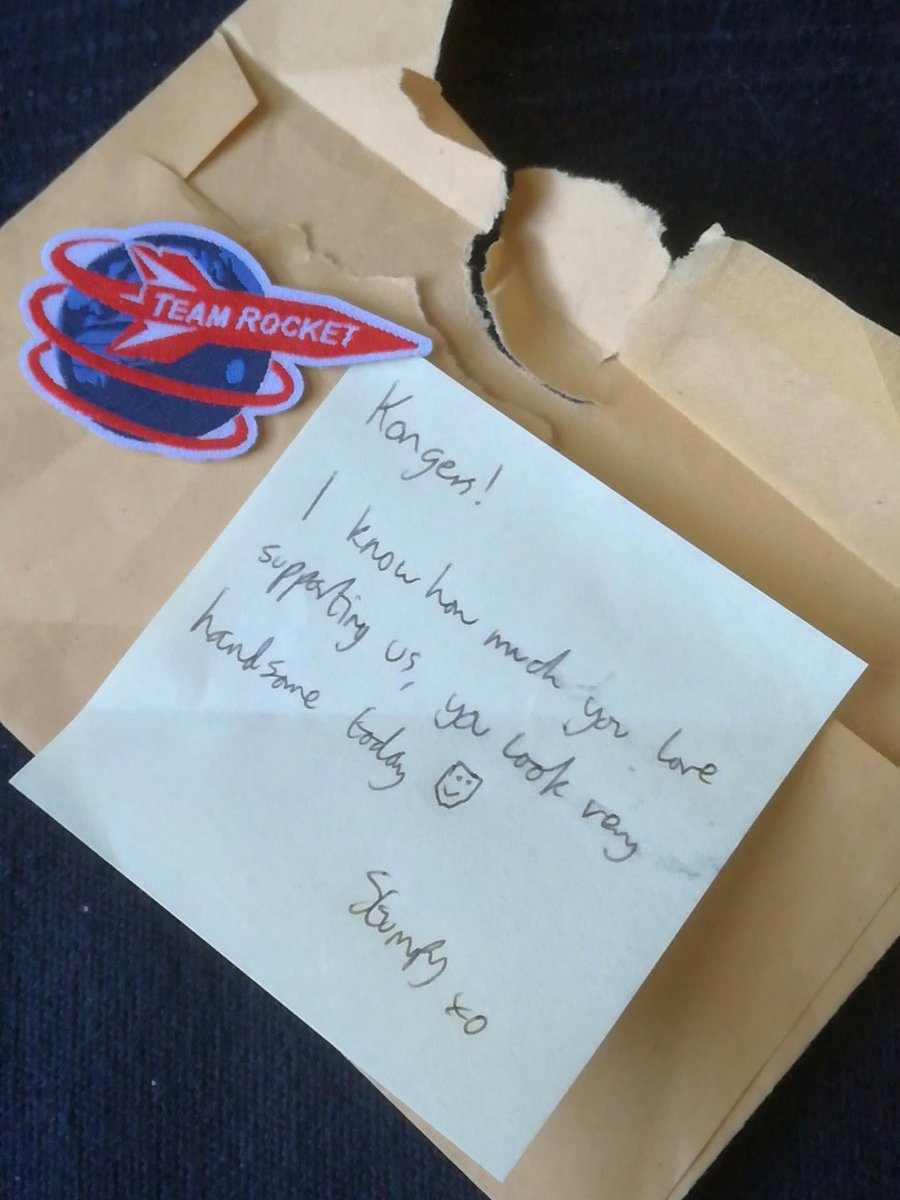 TEAM ROCKET
Kongers!
I know how much you love
supporting us, you look very
handsome today
Stumpy xo